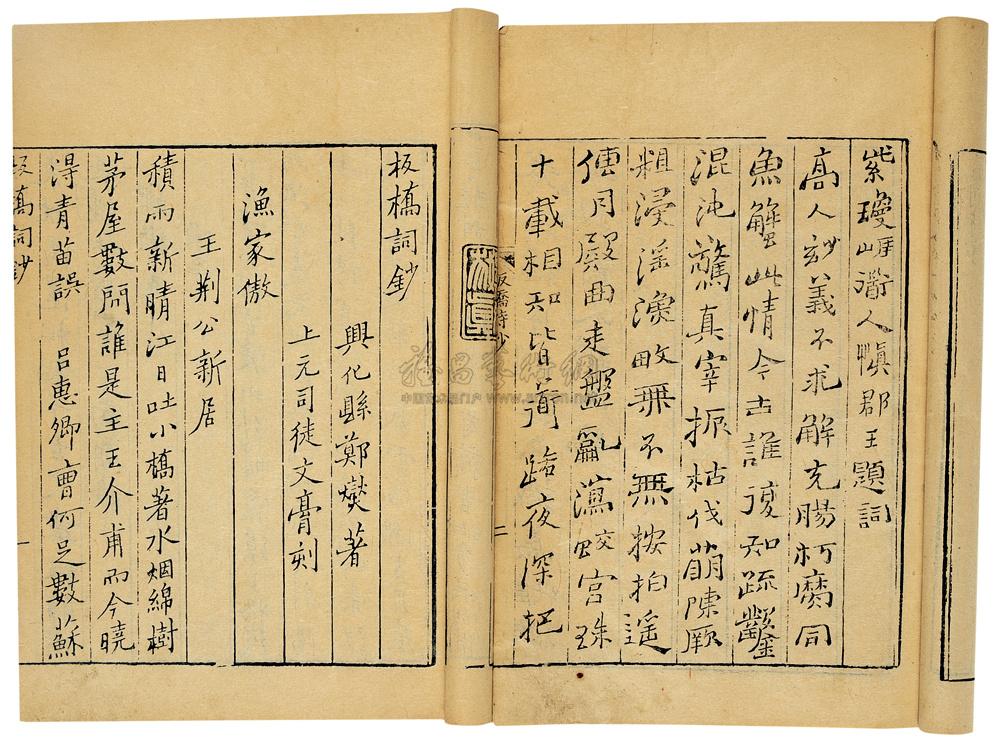 紫瓊崖道人慎郡王題詞
高人妙義不求解充腸朽腐同
魚蟹此情今古誰復知疏鑿
混沌驚真宰振枯伐萌陳厥
粗浸淫漁畋無不無按拍遥
傳月殿曲走盤亂瀉蛟宮珠
十載相知皆道路夜深把
板橋詩鈔
二
板橋詞鈔
興化縣鄭燮著
上元司徒文膏刻
漁家傲
王荊公新居
積雨新晴江日吐小橋著水烟綿樹
茅屋數間誰是主王介甫而今曉
淂青苗誤 吕惠卿曹何足數蘇
板橋詞鈔
一